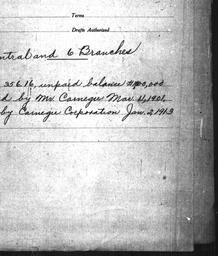 Terms
Drafts Authorized
ntral and 6 Branches
356.16, unpaid balance $100,000
d by Mr. Carnegie Mar. 4, 1901,
by Carnegie Corporation Jan. 2, 1913